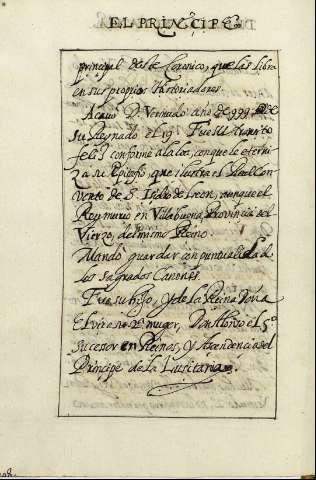 EL PRINCIPE
principal deste Coronico, que las libra
en sus propios Historiadores.
Acavo D. Vermudo año de 999.
su Reynado el 19. Fue su transito
feliz conforme a la loa, con que le eterni
za su Epitafio, que ilustra el Real Con
vento de S. Isidro de Leon, aunque el
Rey murio en Villabuena, Provincia del
Vierzo, del mismo Reino.
Mandò guardar con puntualidad
los sagrados Canones.
Fue su hijo, y de la Reina Doña
Elvira su muger, Don Alonso el 5º
sucessor en Reinos, y Ascendencia del
Principe de la Lusitania.